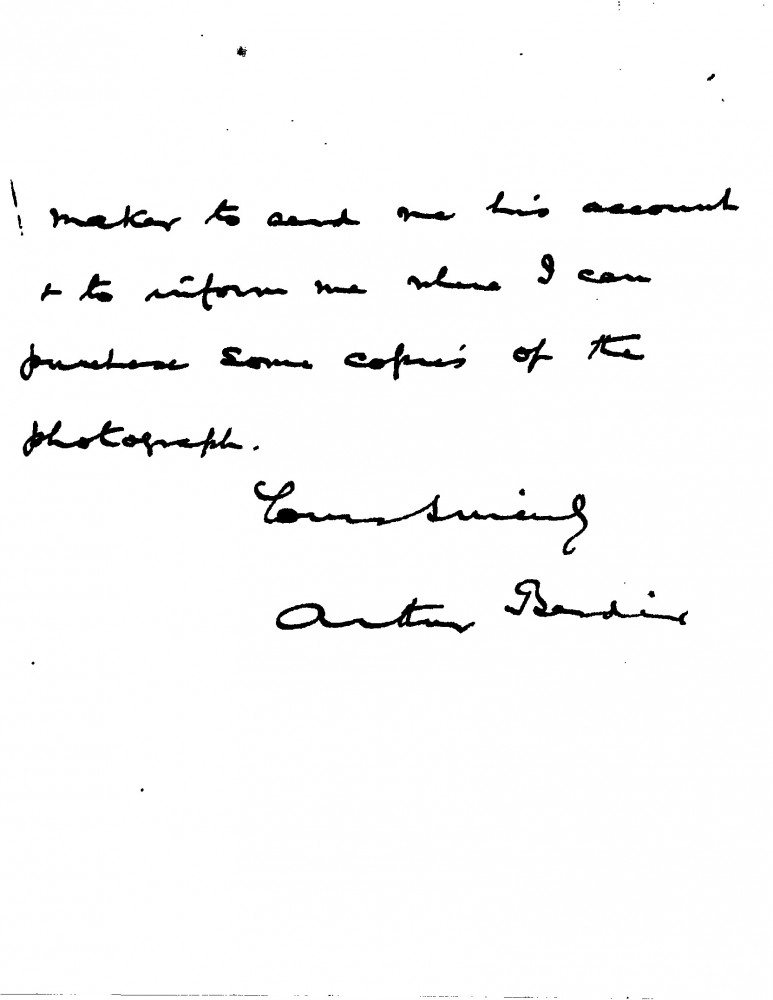 maker to send me his account
+ to inform me where I can
purchase some copies of the
photograph.
Yours sincerely
Arthur